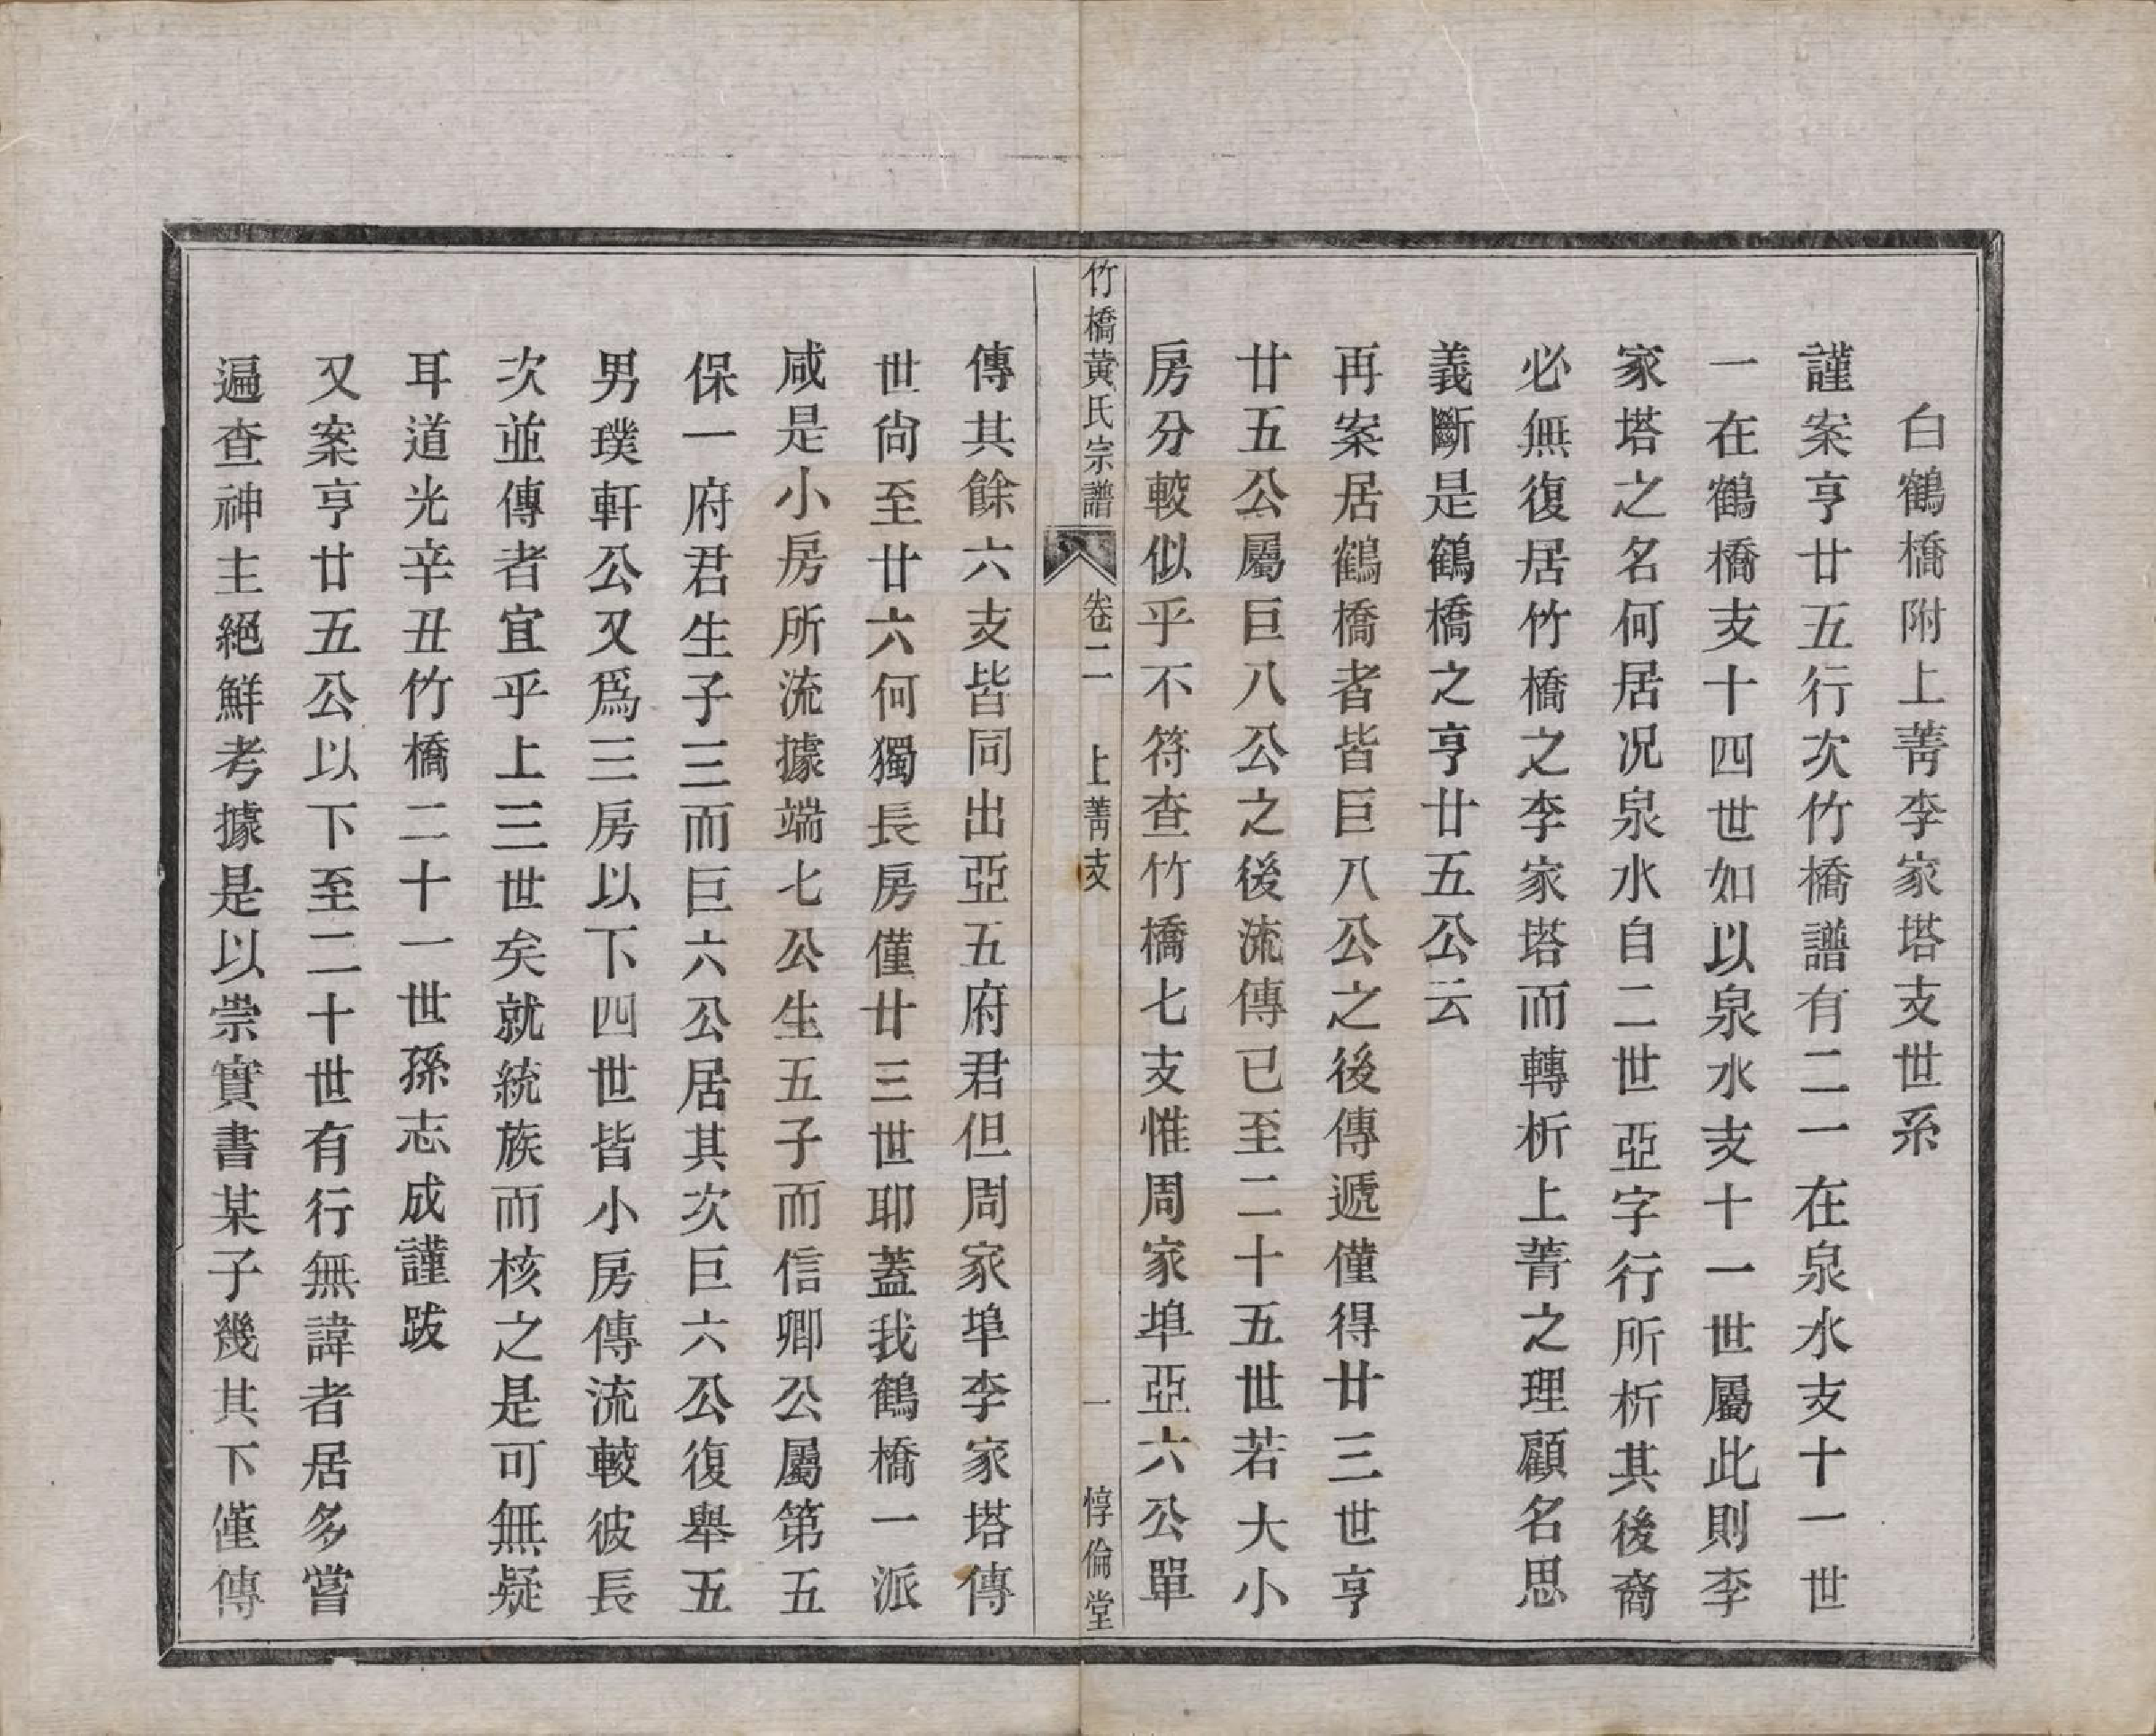 白鶴橋附上菁李家塔支世系
謹案亨廿五行次竹橋譜有二一在泉水支十一世
一在鶴橋支十四世如以泉水支十一世屬此則李
家塔之名何居况泉水自二世亞字行所析其後裔
必無復居竹橋之李家塔而轉析上菁之理顧名思
義斷是鶴橋之亨廿五公云
再案居鶴橋者皆巨八公之後傳遞僅得廿三世亨
廿五公屬巨八公之後流傳已至二十五世若大小
房分較似乎不符查竹橋七支惟周家埠亞六公單
竹橋黃氏宗譜 卷二 上菁支 一 惇倫堂
傳其餘六支皆同出亞五府君但周家埠李家塔傳
世尙至廿六何獨長房僅廿三世耶蓋我鶴橋一派
咸是小房所流據端七公生五子而信卿公屬第五
保一府君生子三而巨六公居其次巨六公復舉五
男璞軒公又爲三房以下四世皆小房傳流較彼長
次並傳者宜乎上三世矣就統族而核之是可無疑
耳道光辛丑竹橋二十一世孫志成謹跋
又案亨廿五公以下至二十世有行無諱者居多嘗
遍查神主絕鮮考據是以崇實書某子幾其下僅傳